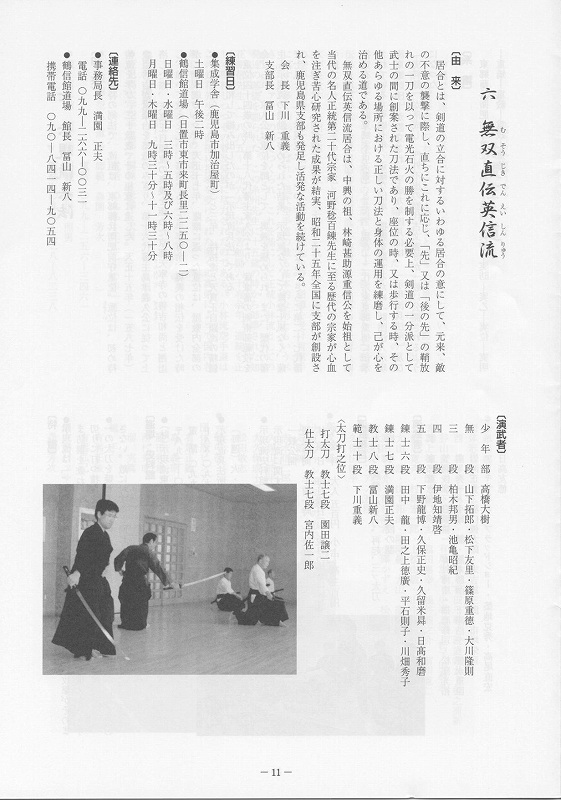 六 無双直伝英信流
む そう じき でん えい しん りゅう
〔由 来〕
居合とは、剣道の立合に対するいわゆる居合の意にして、元来、敵
の不意の襲撃に際し、直ちにこれに応じ、「先」又は「後の先」の鞘放
れの一刀を以って電光石火の勝を制する必要上、剣道の一分派として
武士の間に創案された刀法であり、座位の時、又は歩行する時、その
他あらゆる場所における正しい刀法と身体の運用を練磨し、己が心を
治める道である。
無双直伝英信流居合は、中興の祖、林崎甚助源重信公を始祖として
当代の名人正統第二十代宗家 河野稔百錬先生に至る歴代の宗家が心血
を注ぎ苦心研究された成果が結実、昭和二十五年全国に支部が創設さ
れ、鹿児島県支部も発足し活発な活動を続けている。
会 長 下川 重義
支部長 冨山 新八
〔練習日〕
●集成学舎(鹿児島市加治屋町)
土曜日 午後二時
●鶴信館道場(日置市東市来町長里二二五〇―二)
日曜日・水曜日 三時~五時及び六時~八時
月曜日・木曜日 九時三十分~十一時三十分
〔連絡先〕
●事務局長 満園 正夫
電話 〇九九―二六六―〇〇三一
●鶴信館道場 館長 冨山 新八
携帯電話 〇九〇―八四一四―九〇五四
〔演武者〕
少年部 高橋大樹
無 段 山下拓郎・松下友里・篠原重徳・大川隆則
三 段 柏木邦男・池亀昭紀
四 段 伊地知靖啓
五 段 下野龍博・久保正史・久留米曻・日高和磨
錬士六段 田中 龍・田之上徳廣・平石則子・川畑秀子
錬士七段 満園正夫
教士八段 冨山新八
範士十段 下川重義
〈太刀打之位〉
打太刀 教士七段 園田譲二
仕太刀 教士七段 宮内佐一郎
― 11 ―